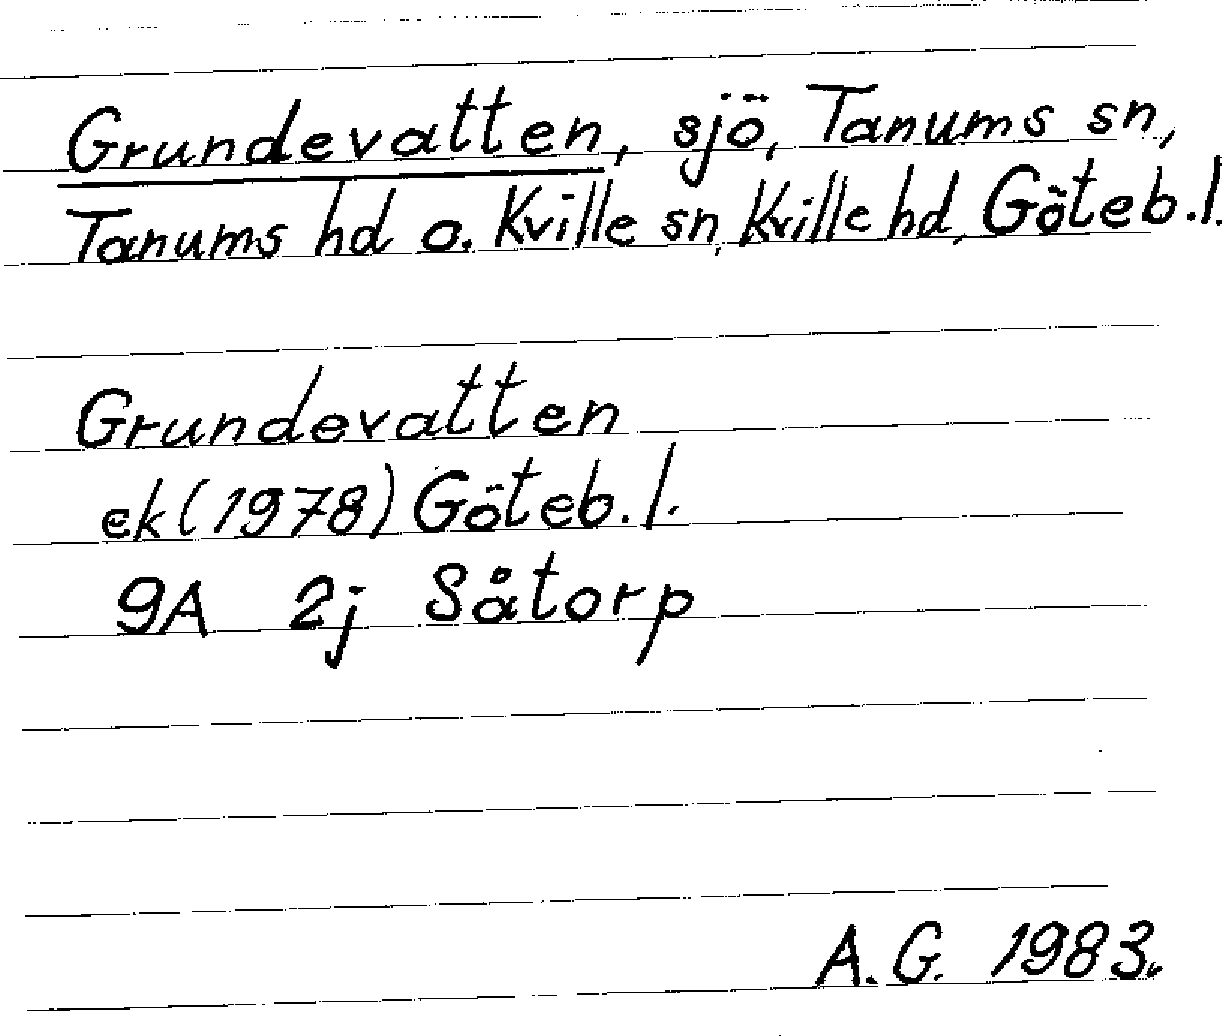 Grundevatten, sjö, Tanums sn,
Tanums hd o. Kville sn, Kville hd, Göteb.l.
Grundevatten
ek (1978) Göteb.l.
9A 2j Såtorp
A.G. 1983.